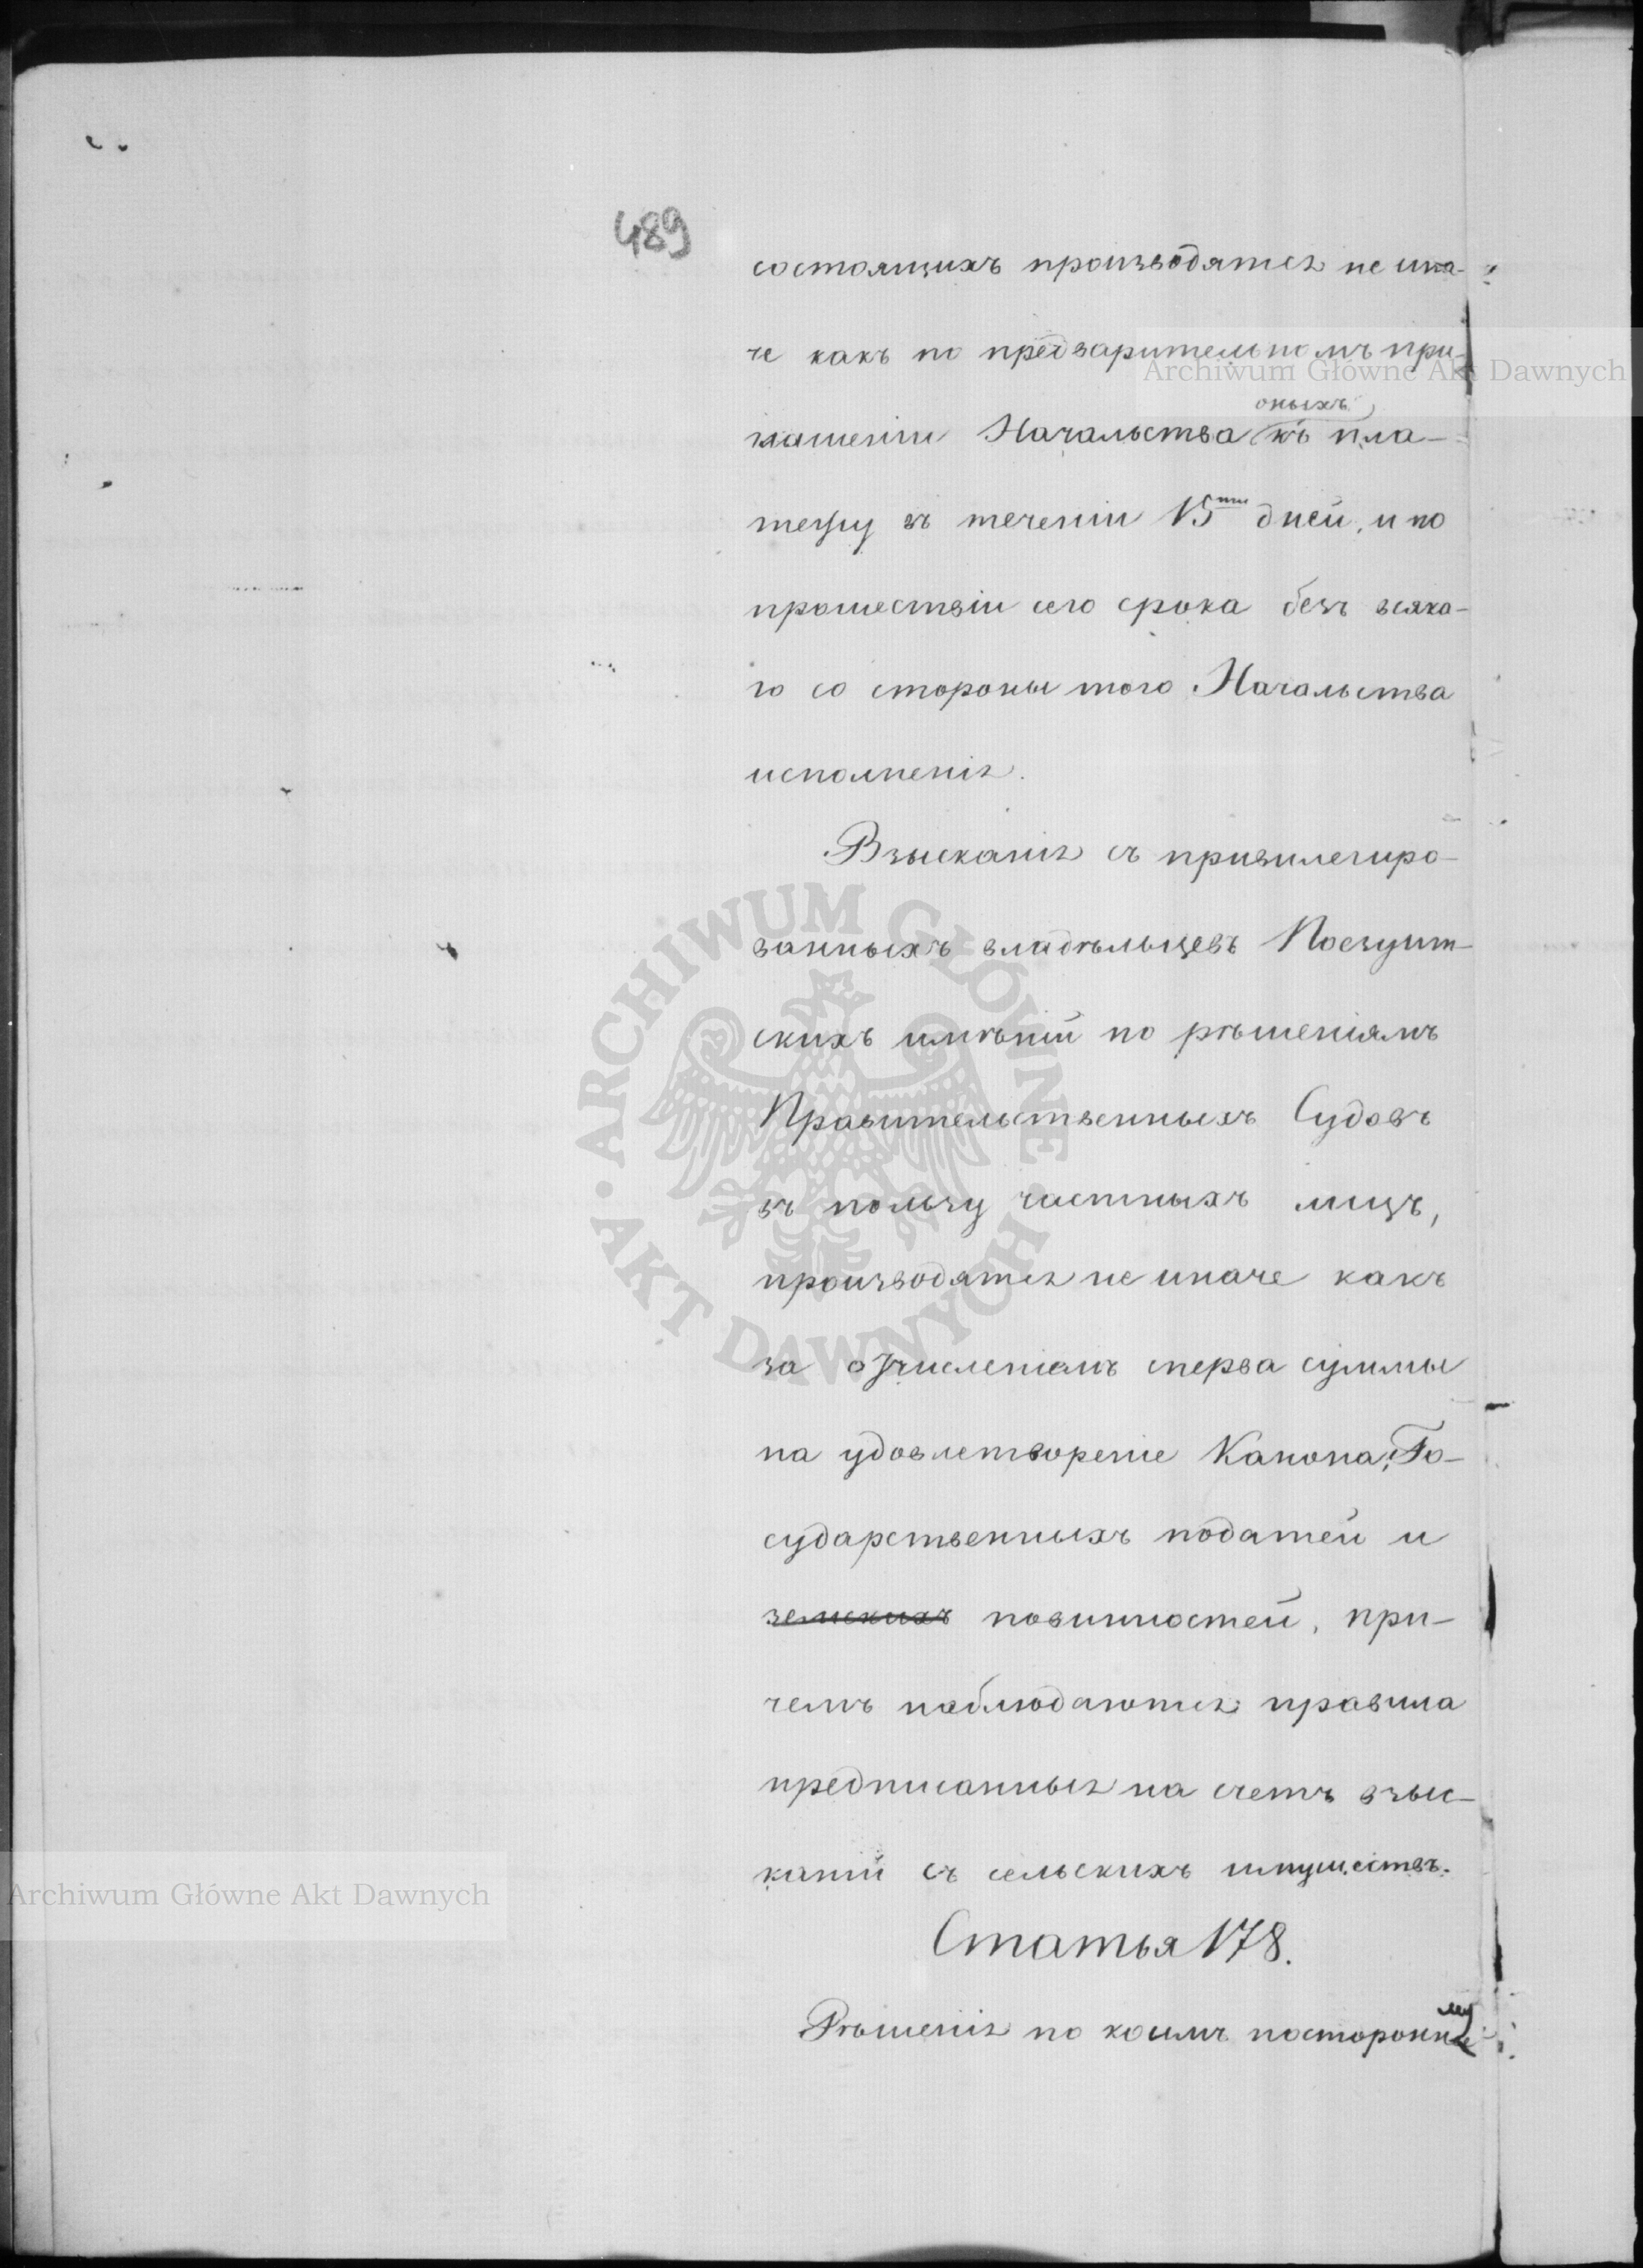 489
состоящихъ производятся не ина-
че какъ по предварительномъ при-
глашеніи Начальства оныхъ къ пла-
тежу въ теченіи 15ти дней, и по
прошествіи сего срока безъ всяка-
го со стороны того Начальства
исполненія.
Взысканія съ привилегиро-
ванныхъ владѣльцевъ Поезуит-
скихъ имѣній по рѣшеніямъ
Правительственныхъ Судовъ
въ пользу частныхъ лицъ,
производятся не иначе какъ
за отчисленіемъ сперва суммы
на удовлетвореніе Канона, Го-
сударственныхъ податей и
земскихъ повинностей, при-
чемъ наблюдаются правила
предписанныя на счетъ взыс-
каній съ сельскихъ имуществъ.
Статья 178.
Рѣшенія по коимъ посторонне
му
Archiwum Główne Akt Dawnych
ARCHIWUM GŁÓWNE AKT DAWNYCH
Archiwum Główne Akt Dawnych